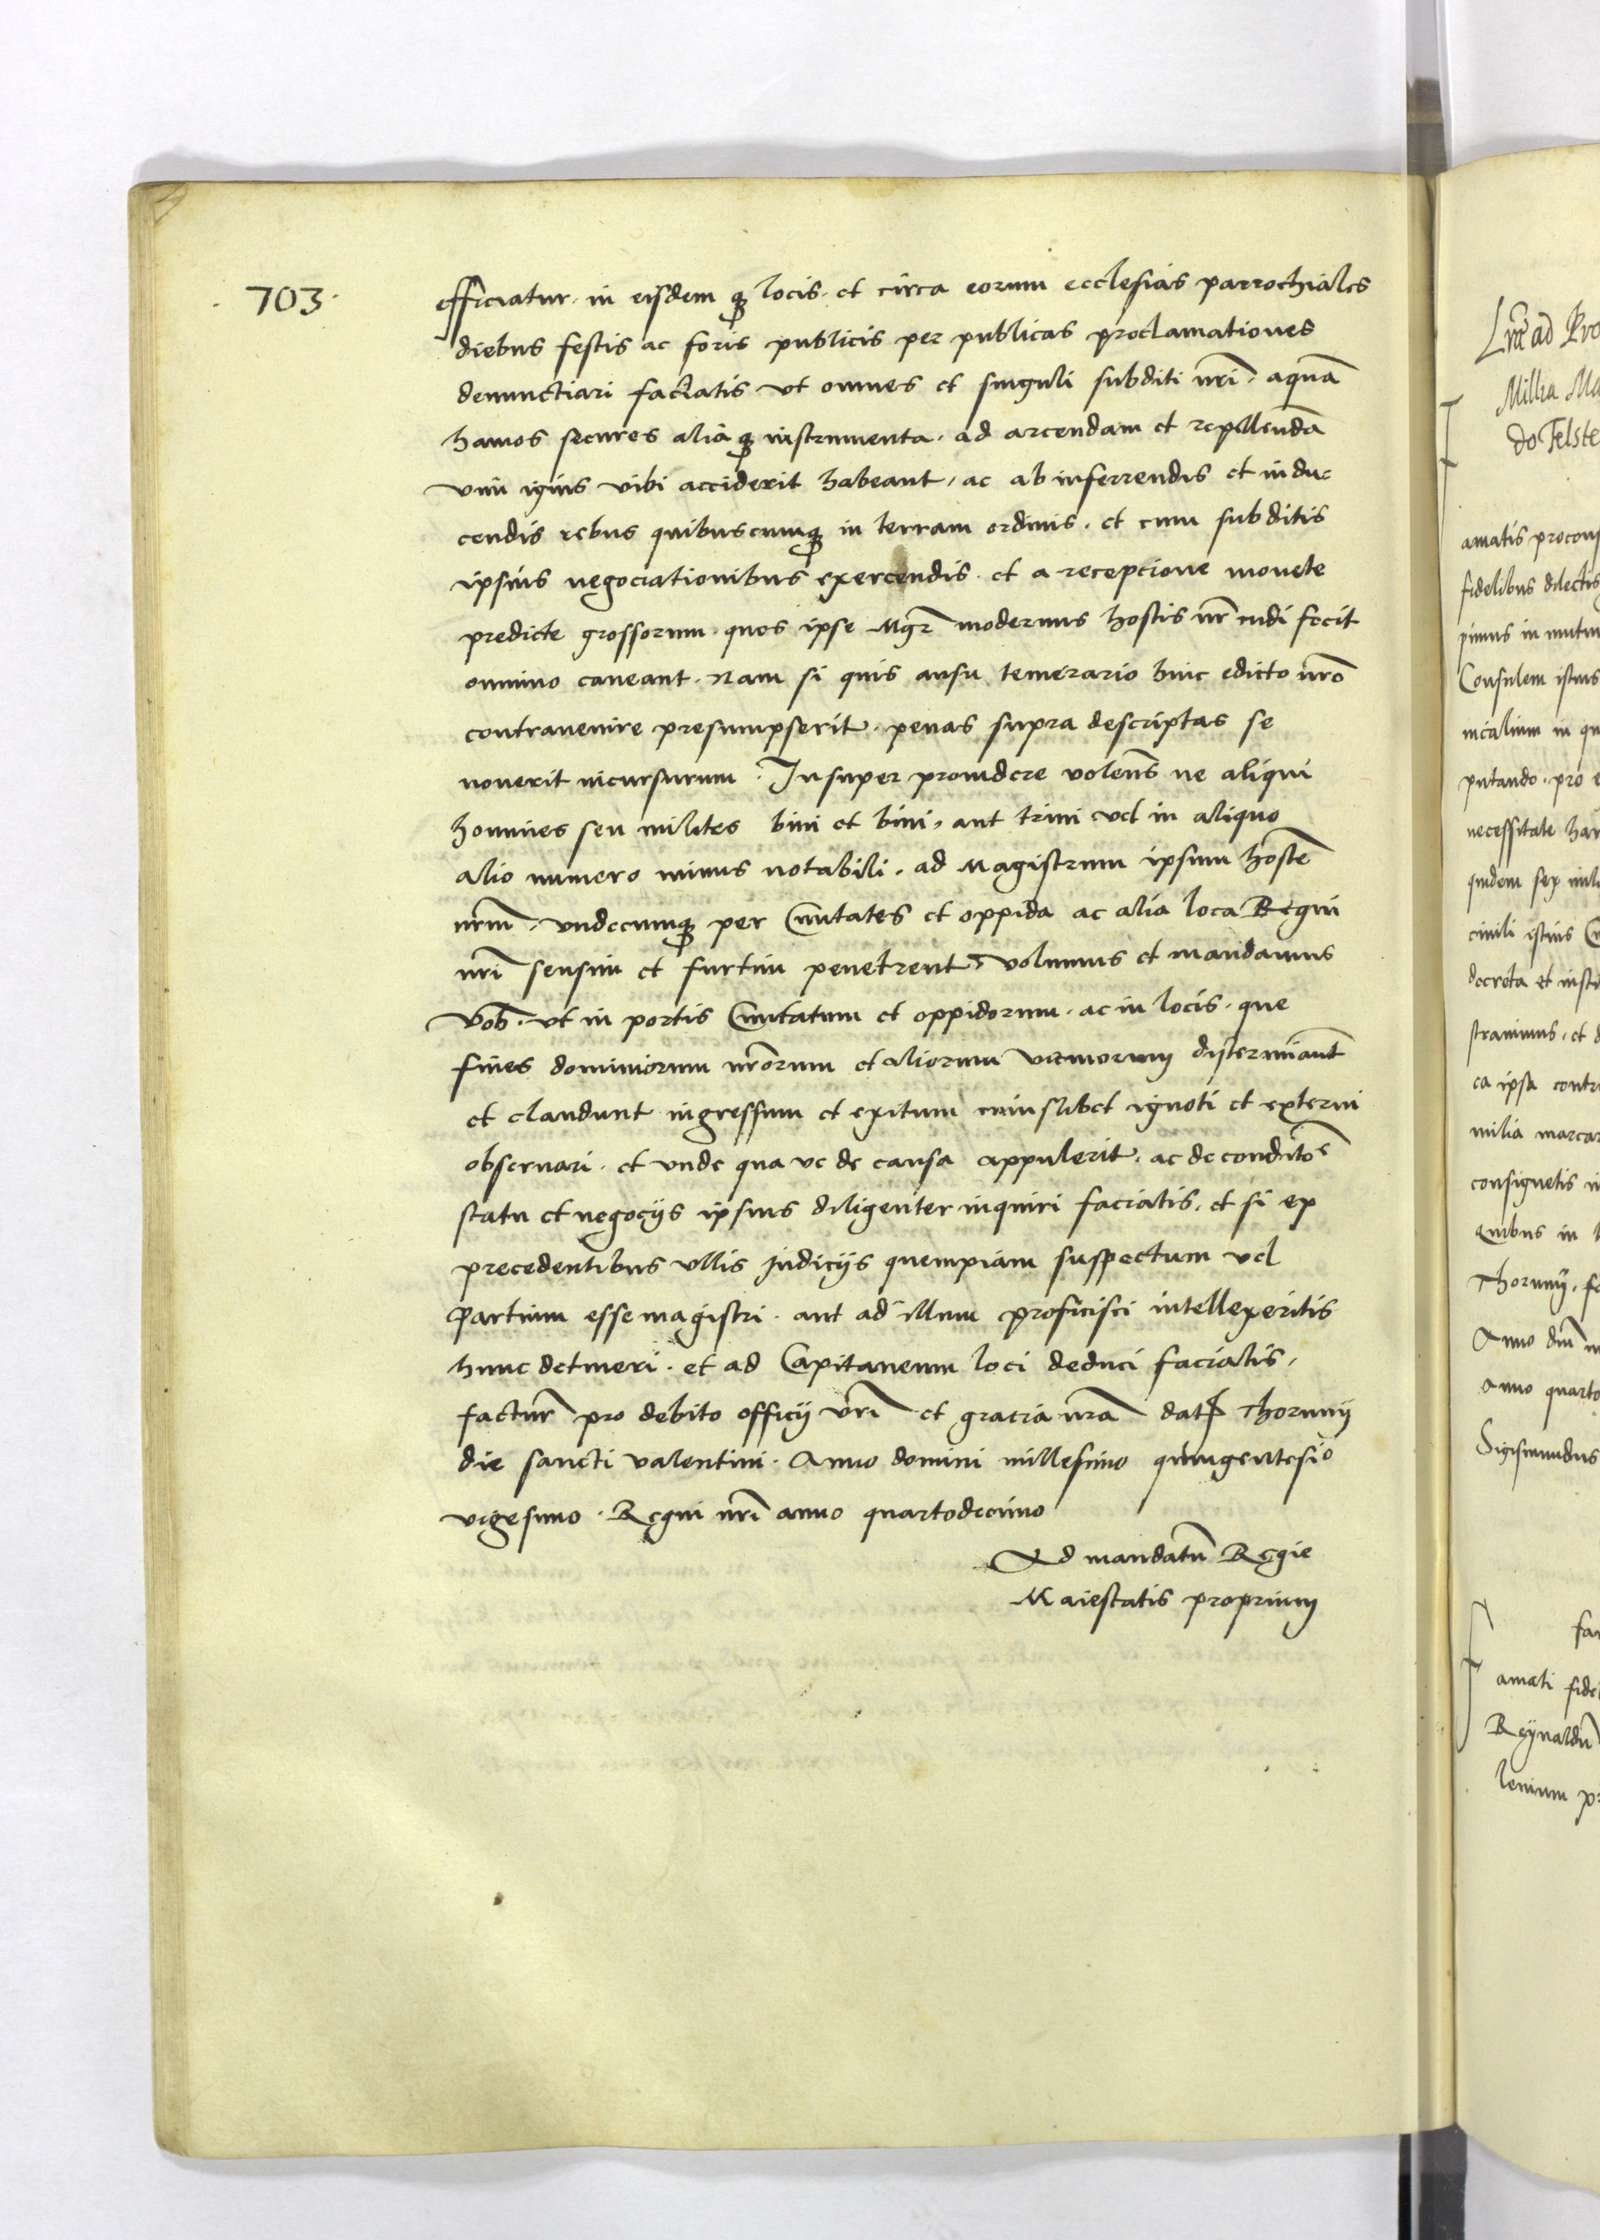 703
efficiatur. in eisdem q locis. et circa eorum ecclesias parrochiales
diebus festis ac foris publicis per publicas proclamationes
denunctiari faciatis vt omnes et singuli subditi nrī. aquā
hamos secures aliaq instrumenta. ad arcendam et repellendā
vim ignis vibi acciderit habeant, ac ab inferrendis et indu
cendis rebus quibuscumq in terram ordinis. et cum subditis
ipsius negociationibus exercendis. et a recepcione monete
predicte grossorum quos ipse Mgr modernus hostis nr̄ cudi fecit
omnino caneant. Nam si quis ausu temerario huic edicto nrō
contrauenire presumpserit. penas supra descriptas se
nouerit incursurum. Insuper prouidere volens ne aliqui
homines seu milites bini et bini, aut trini vel in aliquo
alio numero minus notabili. ad Magistrum ipsum hostē
nrm̄. vndecumq per Ciuitates et oppida ac alia loca Regni
nrī sensim et furtim penetrent. volumus et mandamus
vob. vt in portis Ciuitatum et oppidorum. ac in locis. que
fines dominiorum nrōrum et aliorum vicinorum disterminant
et claudunt ingressum et exitum cuiuslibet ignoti et externi
obseruari. et vnde qua ve de causa appulerit. ac de conditōe
statu et negocijs ipsius diligenter inquiri faciatis. et si ex
precedentibus vllis Judicijs quempiam suspectum vel
partium esse magistri. aut ad illum proficisci intellexeritis
hunc detineri. et ad Capitaneum loci deduci faciatis,
factur̄ pro debito officij vrī et gracia nrā dat Thorunij
die sancti valentini. Anno domini millesimo quingentesio
vigesimo. Regni nrī anno quartodecimo
Ad mandatū Regie
Maiestatis proprium
Lrē ad Pro
Millia Ma
do Felste
amatis procons
fidelibus dilectis
pimus in mutu
Consulem istius
nicalium in qu
putando. pro e
necessitate har
quidem sex mil
ciuili istius C
decreta et insti
strauimus. et d
ca ipsa contri
milia marcar
consignetis in
quibus in
Thorunij. fe
Anno dnī m
anno quarto
Sigismundus
fa
amati fide
Reynaldū
lenium pr